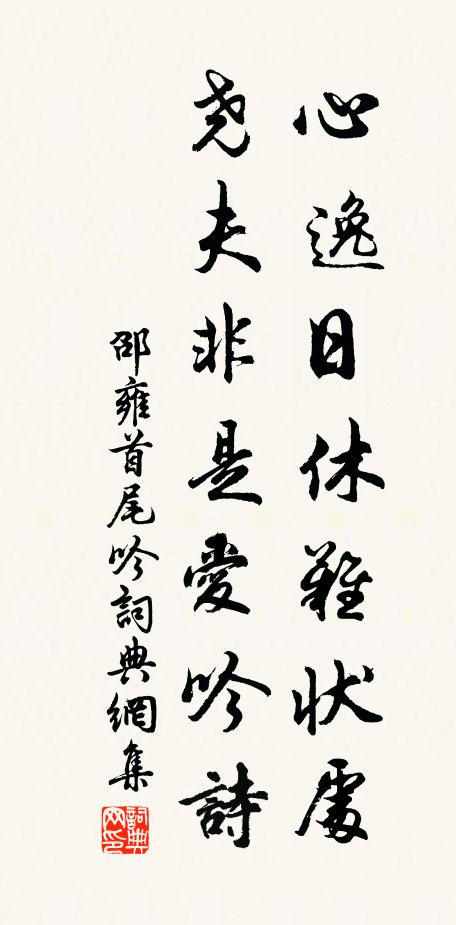 心逸日休難狀處
尭夫非是愛吟詩
邵雍首尾吟詞典網集
詞典网印